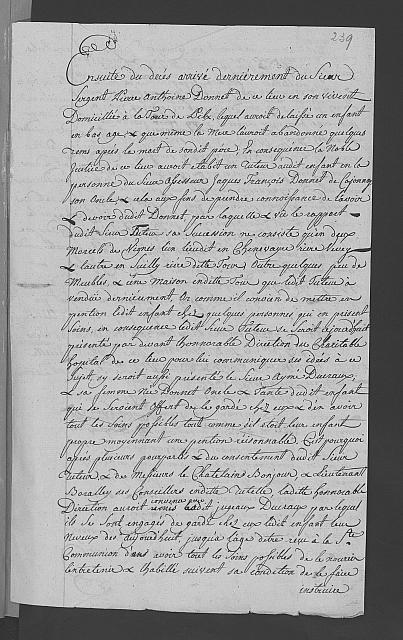 239
Ensuite du decés arrivé dernièrement du Sieur
Sergent Pierre Anthoine Donnet de ce lieu en son vivent
Domicilliée à la Tour de Peilz, lequel auroit delaissé un enfant
en bas age, & que même la Mere l'auroit abandonné quelques
tems après la mort de sondit père, En consequence la Noble
Justice de ce lieu auroit établit un Tuteur audit enfant en la
personne du Sieur Assesseur Jaques François Donnet de
son Oncle, & cela aux fins de prendre connoissance de l'avoir
& devoir dudit Donnet, par laquelle & vû le rapport
dudit Sieur Tuteur sa Sucession ne consiste qu'en deux
Morcels de Vignes l'un leudit en Chenevayre rière Vevey
& l'autre en Suilly rière ditte Tour, Outre quelques peu de
Meubles, & une Maison enditte Tour que ledit Tuteur à
vendüe dernièrement, Or comme il convien de mettre en
pention ledit enfant chez quelques personnes qui en prenent
soins, en consequence ledit Sieur Tuteur se seroit aujourd'huit
présenté par devant l'honnorable Direction du Charitable
hopital de ce lieu pour lui communiquer ses idées à ce
Sujet, sy seroit aussi présenté le Sieur Aymé Ducraux,
& sa femme née Donnet Oncle & Tante dudit enfant
qui se seroient offert de le garde chez eux & d'en avoir
tout les soins possibles tout comme s'il étoit leur enfant
propre moyennant une pention raisonnable. C'est pourquoi
après plusieurs pourparlés & du consentement dudit Sieur
Tuteur & de Messieurs le Chatelain Bonjour & Lieutenant
ses Conseillers enditte Tutelle, laditte honnorable
Direction auroit convenu avec Ducraux par lequel
ils se sont engagés de garde chez eux ledit enfant leur
Neveux dès aujourdheuit, jusqua l'age d'être reçu à la Ste
Communion d'en avoir tout les soins possibles de le nourrir
L'entretenir & l'habillé suivent sa condition de le faire
instruire